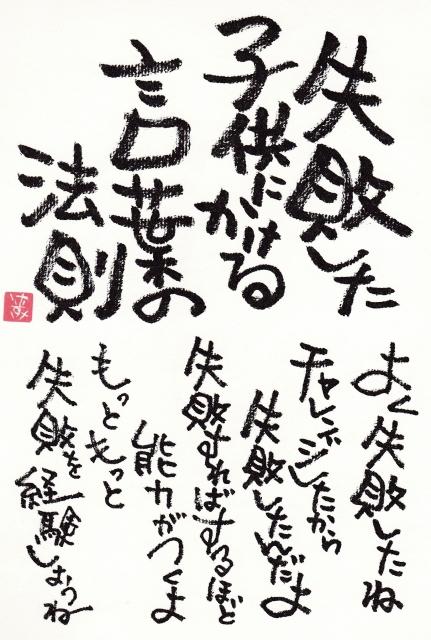 失敗した
子供にかける
言葉の
法則
よく失敗したね
チャレンジしたから
失敗したんだよ
失敗すればするほど
能力がつくよ
もっともっと
失敗を経験しようね